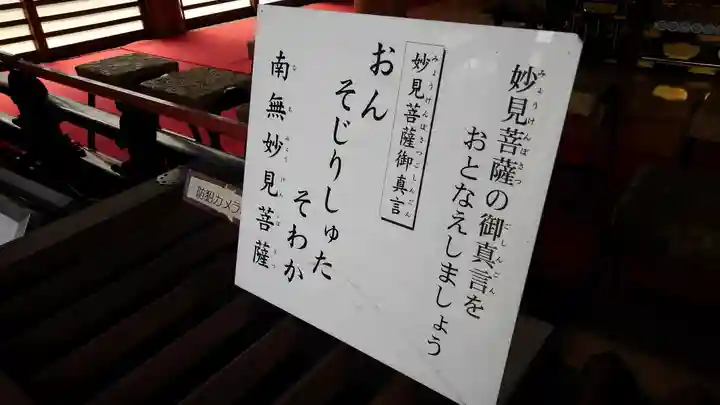 妙見菩薩の御真言を
おとなえしましょう
妙見菩薩御真言
おん
そじりしゅた
そわか
南無妙見菩薩
防犯カメラ